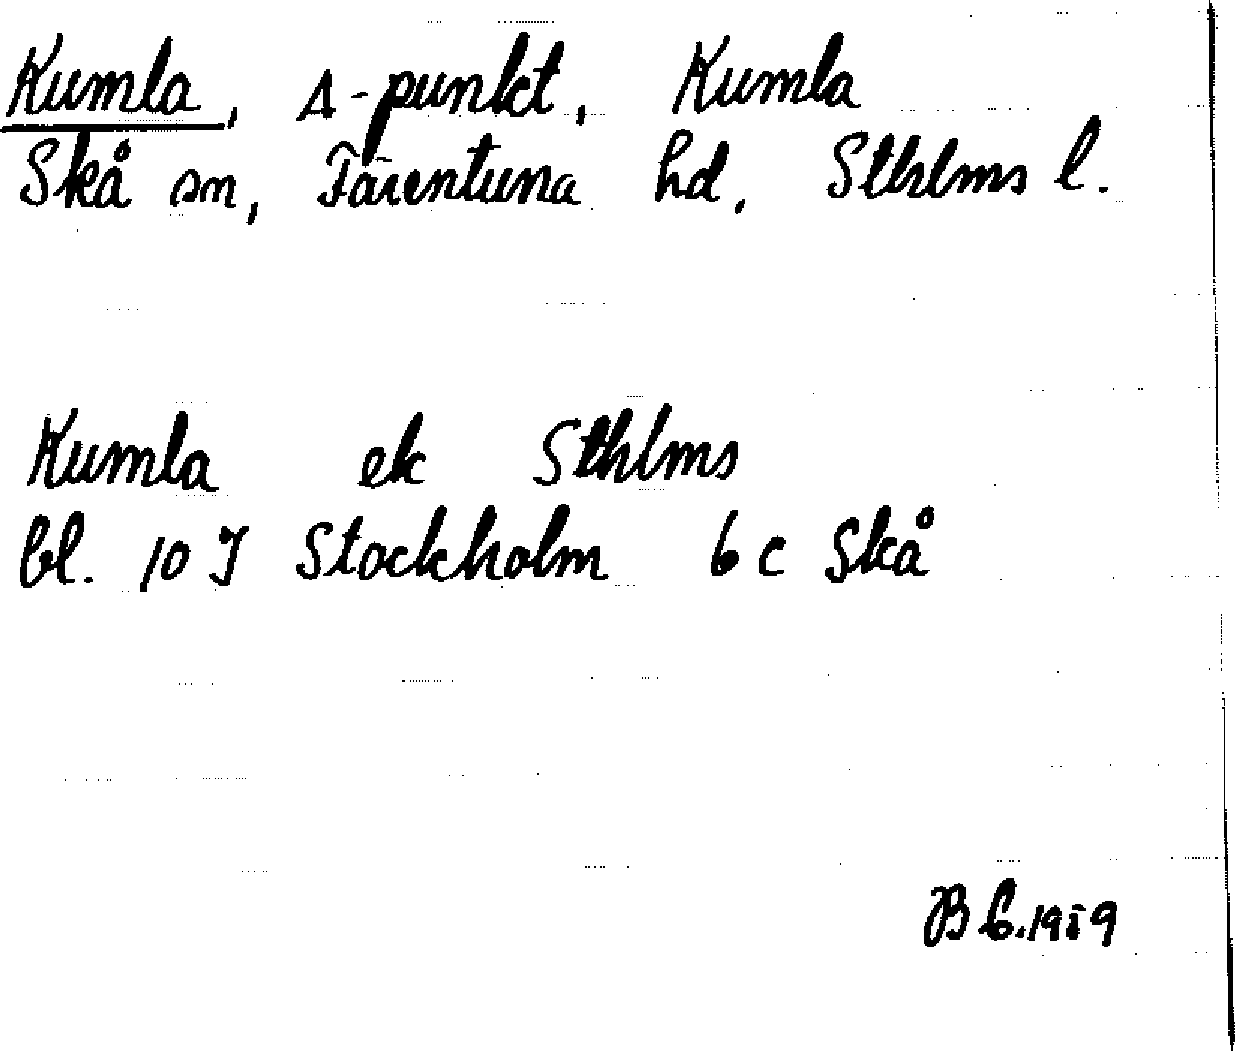 Kumla, Δ-punkt, Kumla
Skå sn, Färentuna hd, Sthlms l.
Kumla ek Sthlms
bl. 10 I Stockholm 6 c Skå
B 6.1959